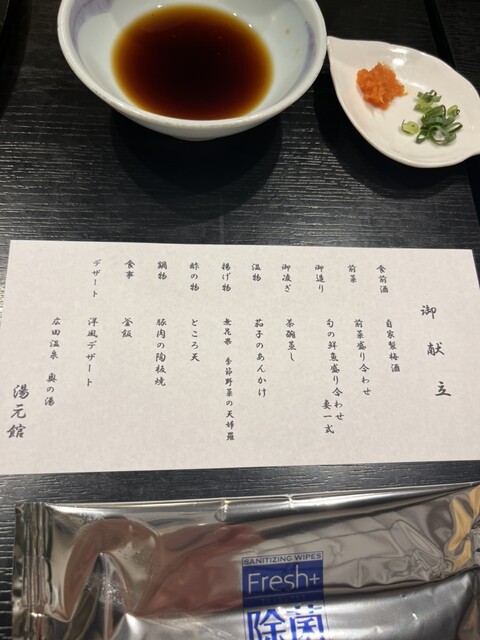 御献立
食前酒 自家製梅酒
前菜 前菜盛り合わせ
御造り 旬の鮮魚盛り合わせ
妻一式
御凌ぎ 茶碗蒸し
温物 茄子のあんかけ
揚げ物 無花果 季節野菜の天婦羅
酢の物 ところ天
鍋物 豚肉の陶板焼
食事 釜飯
デザート 洋風デザート
広田温泉 奥の湯
湯元館
SANITIZING WIPES
Fresh+
除菌